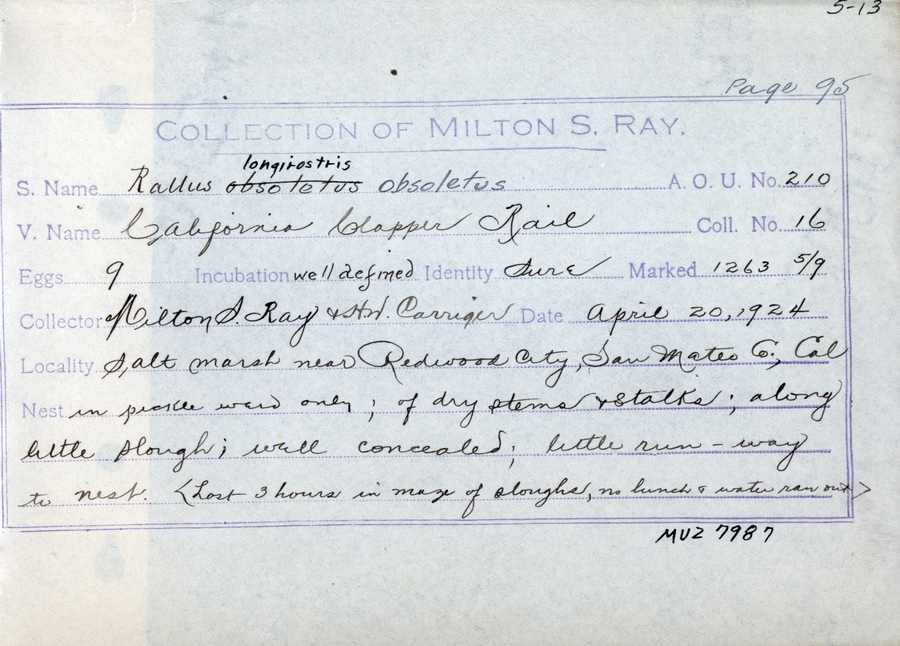 5-13
Page 95
COLLECTION OF MILTON S. RAY.
longirostris
S. Name Rallus obsoletus obsoletus A. O. U. No. 210
V. Name California Clapper Rail Coll. No. 16
Eggs 9 Incubation well defined Identity Sure Marked 1263 5/9
Collector Milton S. Ray & H.W. Carriger Date April 20, 1924
Locality Salt marsh near Redwood City, San Mateo Co., Cal
Nest in pickle weed only; of dry stems & stalks; along
little slough; well concealed; little run-way
to nest. <Lost 3 hours in maze of sloughs, no lunch & water ran out>
MVZ 7987